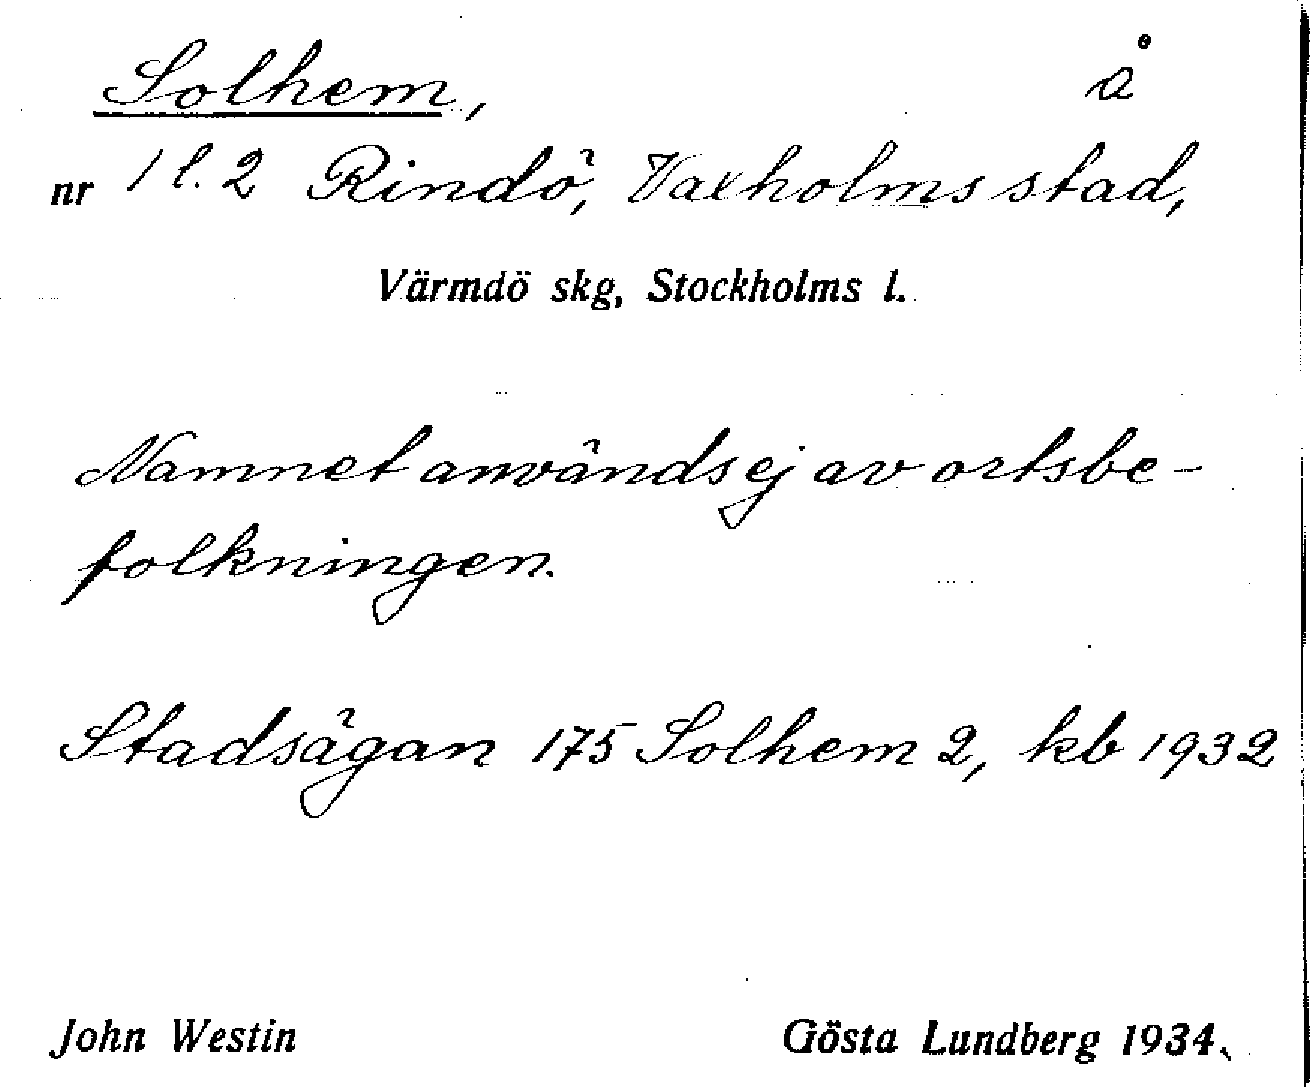 Solhem, å
nr 1 l. 2 Rindö, Vaxholms stad,
Värmdö skg, Stockholms l.
Namnet användsej av ortsbe-
folkningen.
Stadsägan 175 Solhem 2, kb 1932
John Westin Gösta Lundberg 1934.